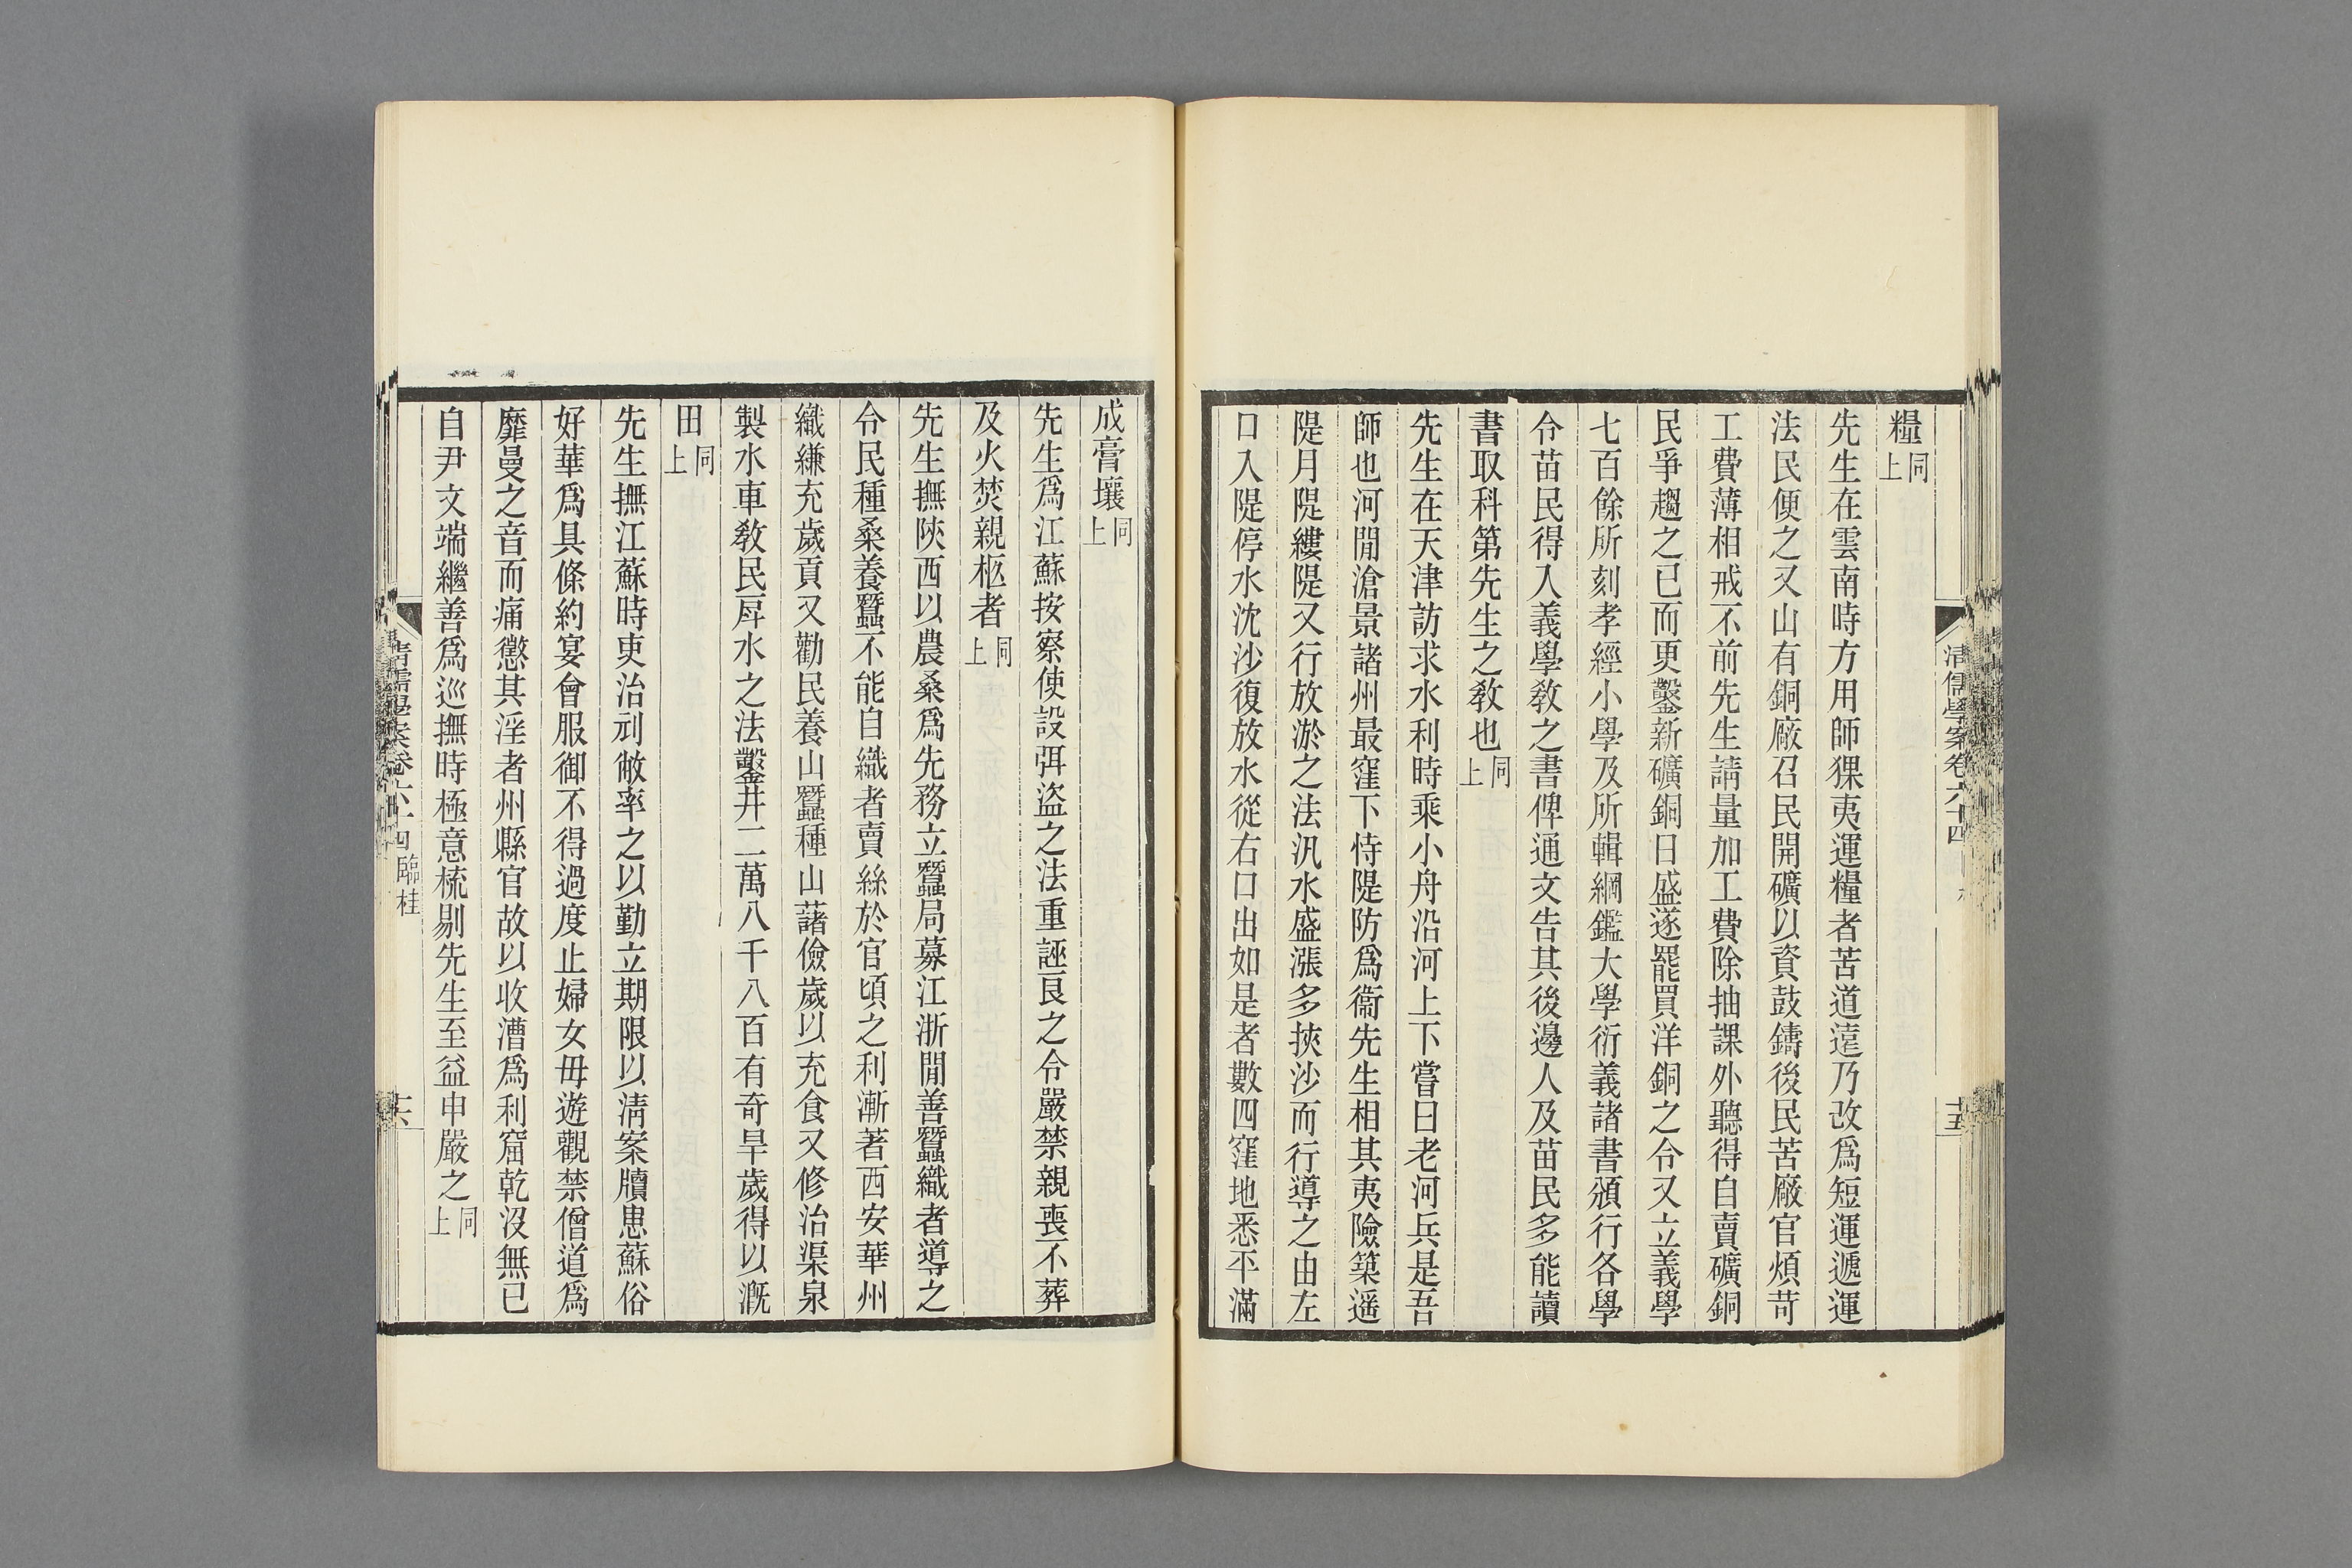 清儒學案卷六十四
十五
糧同上
先生在雲南時方用師猓夷運糧者苦道遠乃改爲短運遞運
法民便之又山有銅廠召民開礦以資鼓鑄後民苦廠官煩苛
工費薄相戒不前先生請量加工費除抽課外聽得自賣礦銅
民爭趨之已而更鑿新礦銅日盛遂罷買洋銅之令又立義學
七百餘所刻孝經小學及所輯綱鑑大學衍義諸書頒行各學
令苗民得入義學敎之書俾通文告其後邊人及苗民多能讀
書取科第先生之敎也同上
先生在天津訪求水利時乘小舟沿河上下嘗曰老河兵是吾
師也河閒滄景諸州最窪下恃隄防爲衞先生相其夷險築遥
隄月隄縷隄又行放淤之法汛水盛漲多挾沙而行導之由左
口入隄停水沈沙復放水從右口出如是者數四窪地悉平滿
成膏壤同上
先生爲江蘇按察使設弭盜之法重誣良之令嚴禁親喪不葬
及火焚親柩者同上
先生撫陝西以農桑爲先務立蠶局募江浙閒善蠶織者導之
令民種桑養蠶不能自織者賣絲於官頃之利漸著西安華州
織縑充歲貢又勸民養山蠶種山藷儉歲以充食又修治渠泉
製水車敎民戽水之法鑿井二萬八千八百有奇旱歲得以漑
田同上
先生撫江蘇時吏治刓敝率之以勤立期限以淸案牘患蘇俗
好華爲具條約宴會服御不得過度止婦女毋遊觀禁僧道爲
靡曼之音而痛懲其淫者州縣官故以收漕爲利窟乾沒無已
自尹文端繼善爲巡撫時極意梳剔先生至益申嚴之同上
清儒學案卷六十四 臨桂
十六